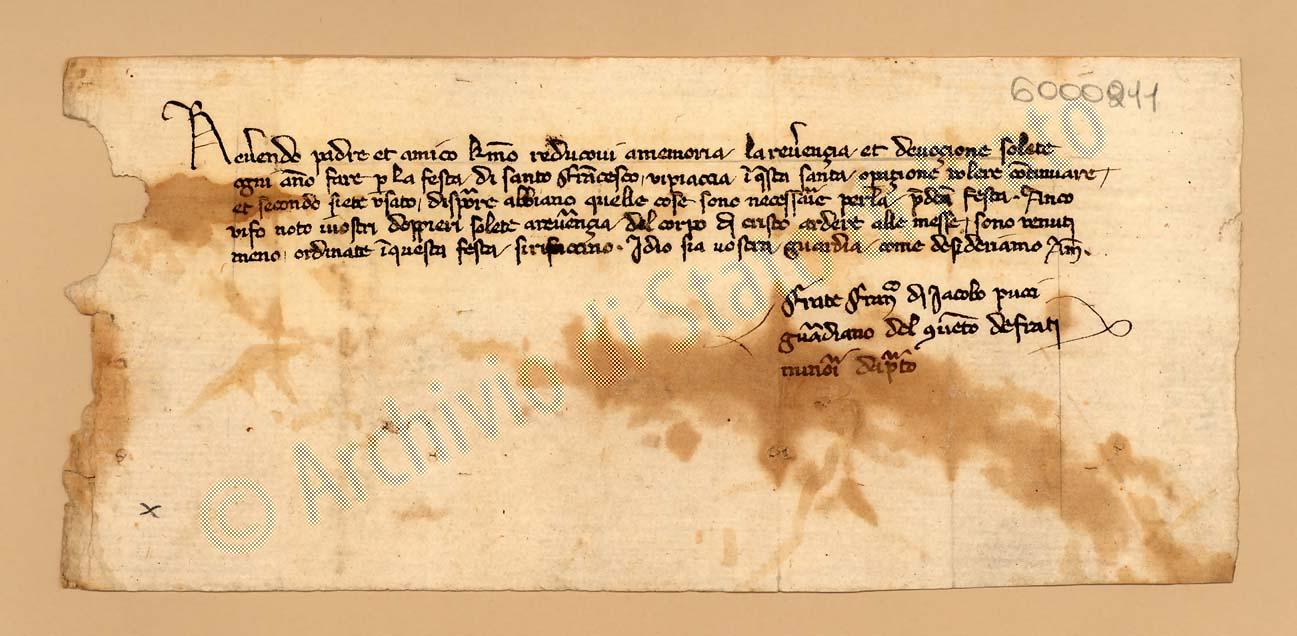 6000841
Reverendo padre et amico karissimo reducovi a memoria la reverençia et devoçione solete
ogni año fare per la festa di santo francesco, vi piaccia i questa santa opiçione volere cotinuare,
et secondo siete usato, dispore abbiano quelle cose sono necessarie per la festa. Anco
vi fo noto i vostri doppieri solete a reverençia del corpo di cristo ardere alle messe, sono venuti
meno, ordinate i questa festa si Idio sia vostra guardia come desideriamo Am.
frate fran di Jacobo pucci
guardiano del coveto de frati
minori di prato
x
© Archivio di Stato di Prato